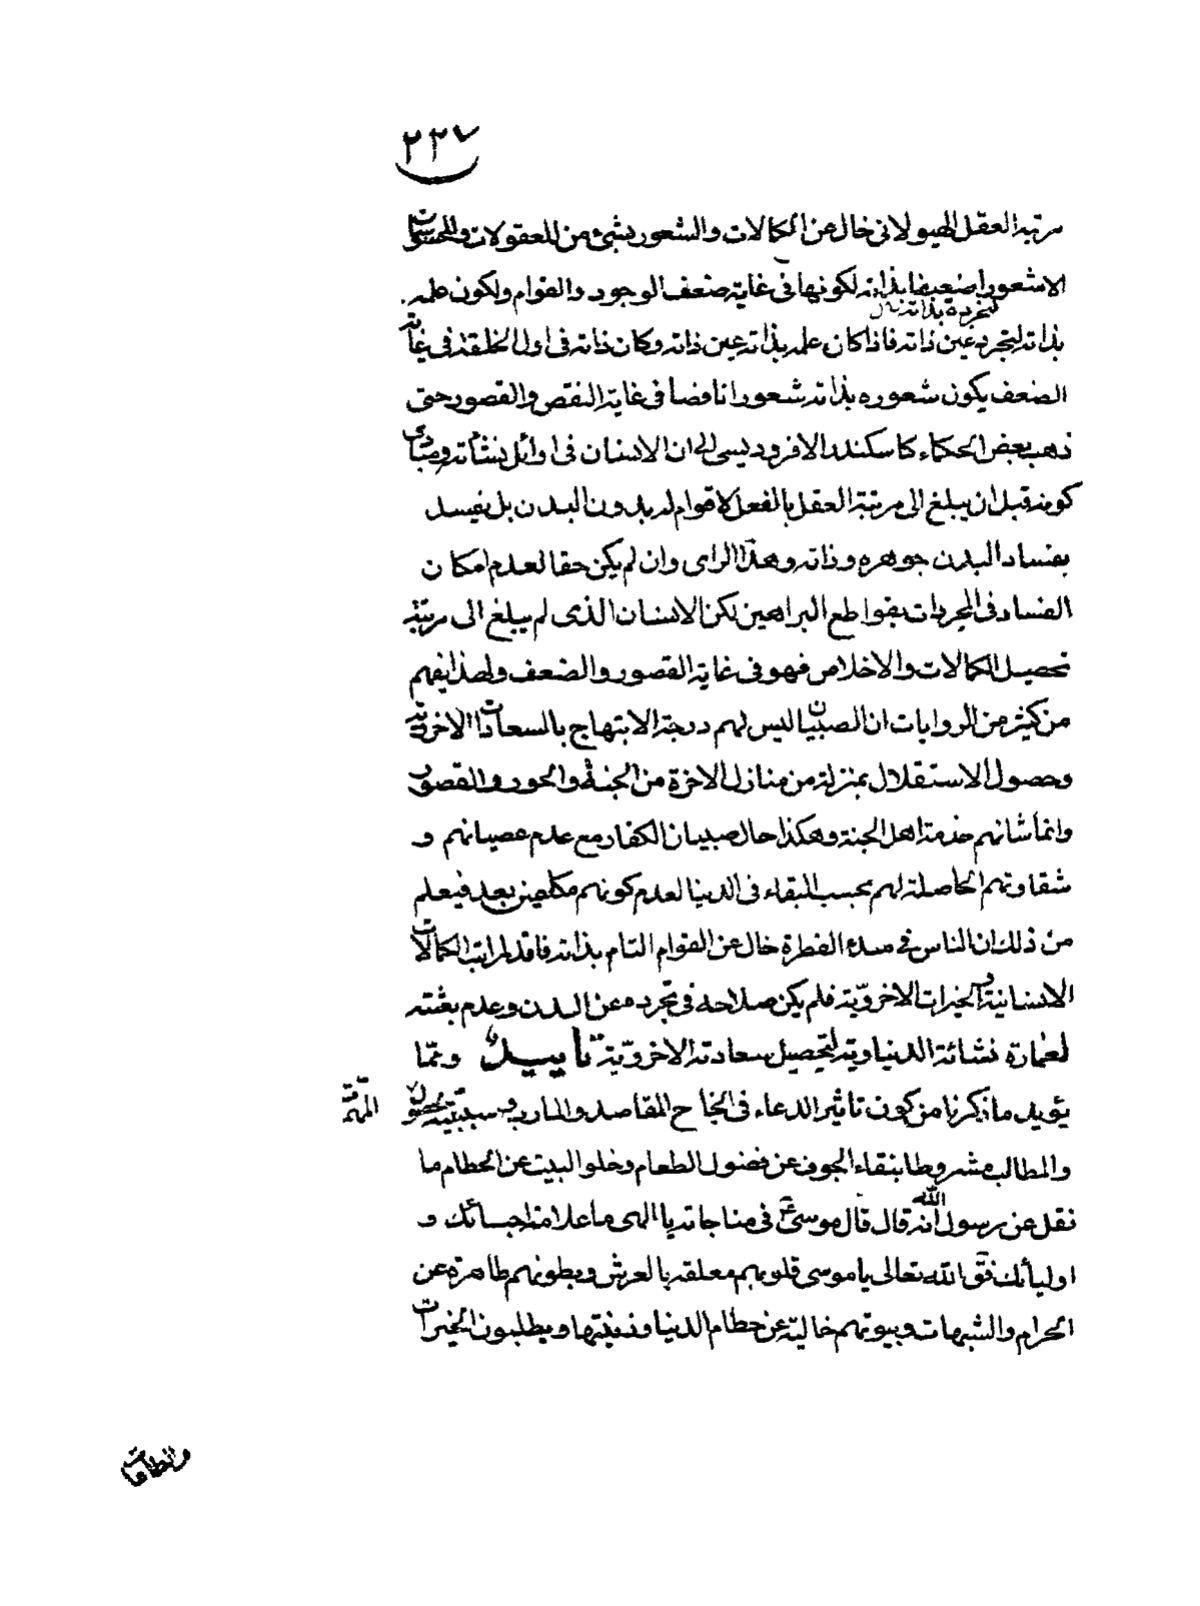 ٢٣٧
مرتبة العقل الهيولانى خال عن الكمالات والشعور بشئ من المعقولات والمحسوسات
الا شعورا ضعيفا بذاته لكونها فى غاية ضعف الوجود والقوام ولكون علمه
بذاته لتجرده عين ذاته فاذا كان علمه بذاته عين ذاته وكان ذاته فى اول الخلقة فى غاية
الضعف يكون شعوره بذاته شعورا ناقصا فى غاية النقص والقصور حتى
ذهب بعض الحكماء كاسكندر الافروديسى الى ان الانسان فى اوائل نشأته ومبادى
كونه قبل ان يبلغ الى مرتبة العقل بالفعل لا قوام له بدون البدن بل يفسد
بفساد البدن جوهره وذاته وهذا الراى وان لم يكن حقا لعدم امكان
الفساد فى المجردات بقواطع البراهين لكن الانسان الذى لم يبلغ الى مرتبة
تحصيل الكمالات والاخلاص فهو فى غاية القصور والضعف ولهذا يفهم
من كثير من الروايات ان الصبيان ليس لهم درجة الابتهاج بالسعادات الاخروية
وحصول الاستقلال بمنزلة من منازل الاخرة من الجنة والحور والقصور
وانما شانهم خدمة اهل الجنة وهكذا حال صبيان الكفار مع عدم عصيانهم و
شقاوتهم الحاصلة لهم بحسب البقاء فى الدنيا لعدم كونهم مكلفين بعد فيعلم
من ذلك ان الناس فى مبدء الفطرة خال عن القوام التام بذاته فاقد لمراتب الكمالات
الانسانية والخيرات الاخروية فلم يكن صلاحه فى تجرده عن البدن وعدم بعثته
لعمارة نشائة الدنياوية لتحصيل سعادته الاخروية تأييد ومما
يؤيد ما ذكرنا من كون تاثير الدعاء فى انجاح المقاصد والمارب وسببيته لحصول المهمة
والمطالب مشروطا بنقاء الجوف عن فضول الطعام وخلو البيت عن الحطام ما
نقل عن رسول الله انه قال قال موسى ع فى مناجاته يا الهى ما علامة احبائك و
اوليائك فق الله تعالى يا موسى قلوبهم معلقه بالعرش وبطونهم طاهرة عن
الحرام والشبهات وبيوتهم خالية عن حطام الدنيا وزينتها ويطلبون الخيرات
والطاعات